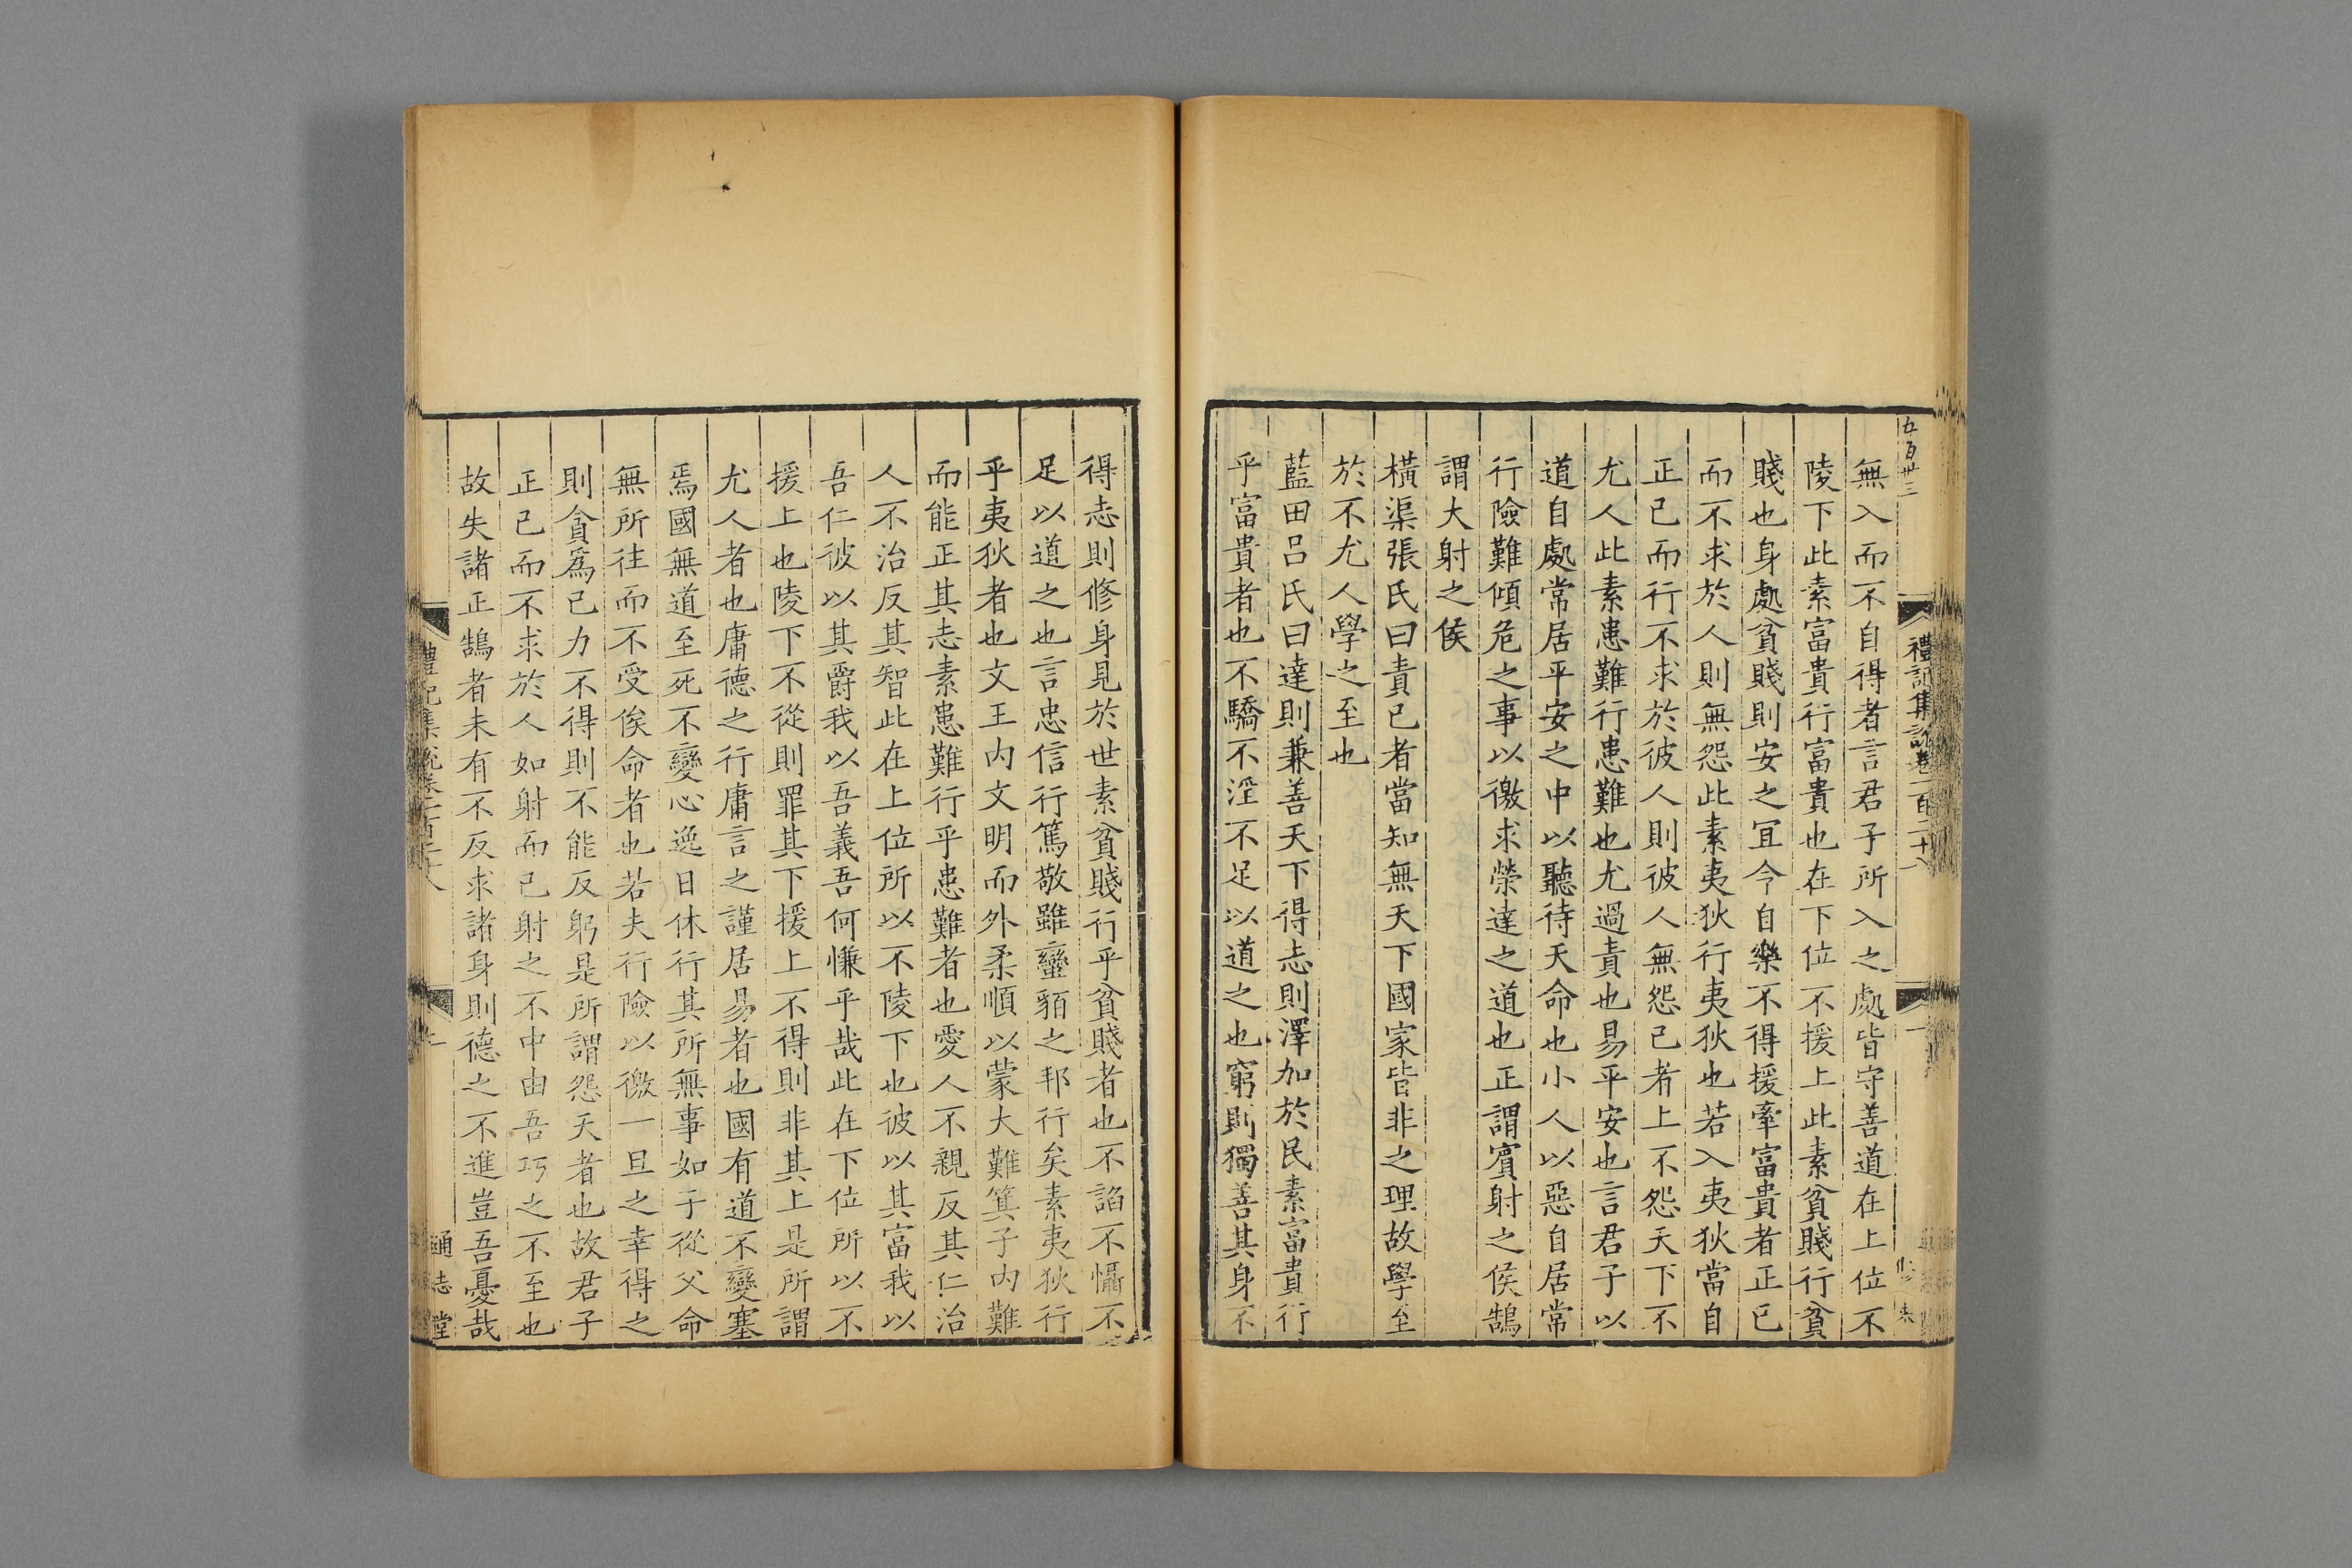 五百卅三
禮記集說卷一百二十八
無入而不自得者言君子所入之處皆守善道在上位不
陵下此素富貴行富貴也在下位不援上此素貧賤行貧
賤也身處貧賤則安之宜今自樂不得援牽富貴者正已
而不求於人則無怨此素夷狄行夷狄也若入夷狄當自
正已而行不求於彼人則彼人無怨己者上不怨天下不
尤人此素患難行患難也尤過責也易平安也言君子以
道自處常居平安之中以聽待天命也小人以惡自居常
行險難傾危之事以徼求榮達之道也正謂賓射之侯鵠
謂大射之侯
橫渠張氏曰責已者當知無天下國家皆非之理故學至
於不尤人學之至也
藍田呂氏曰達則兼善天下得志則澤加於民素富貴行
乎富貴者也不驕不淫不足以道之也窮則獨善其身不
得志則修身見於世素貧賤行乎貧賤者也不諂不懾不
足以道之也言忠信行篤敬雖蠻貊之邦行矣素夷狄行
乎夷狄者也文王內文明而外柔順以蒙大難箕子內難
而能正其志素患難行乎患難者也愛人不親反其仁治
人不治反其智此在上位所以不陵下也彼以其富我以
吾仁彼以其爵我以吾義吾何慊乎哉此在下位所以不
援上也陵下不從則罪其下援上不得則非其上是所謂
尤人者也庸德之行庸言之謹居易者也國有道不變塞
焉國無道至死不變心逸日休行其所無事如子從父命
無所往而不受俟命者也若夫行險以徼一旦之幸得之
則貪爲己力不得則不能反躬是所謂怨天者也故君子
正已而不求於人如射而已射之不中由吾巧之不至也
故失諸正鵠者未有不反求諸身則德之不進豈吾憂哉
禮記集說卷一百二十八
通志堂